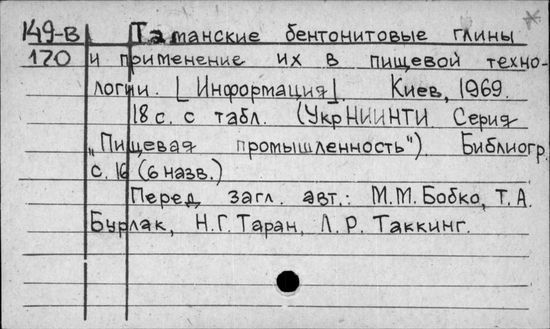 149-В Таманские бентонитовые глины
170 и применение их в пищевой техно-
логии. [Информация]. Киев, 1969.
18 с. с табл. (УкрНИИНТИ Серия
„Пищевая промышленность"). Библиогр.
с. 16 (6 назв.)
Перед загл. авт.: М.М. Бобко, Т.А.
Бурлак, Н.Г. Таран, Л.Р. Таккинг.